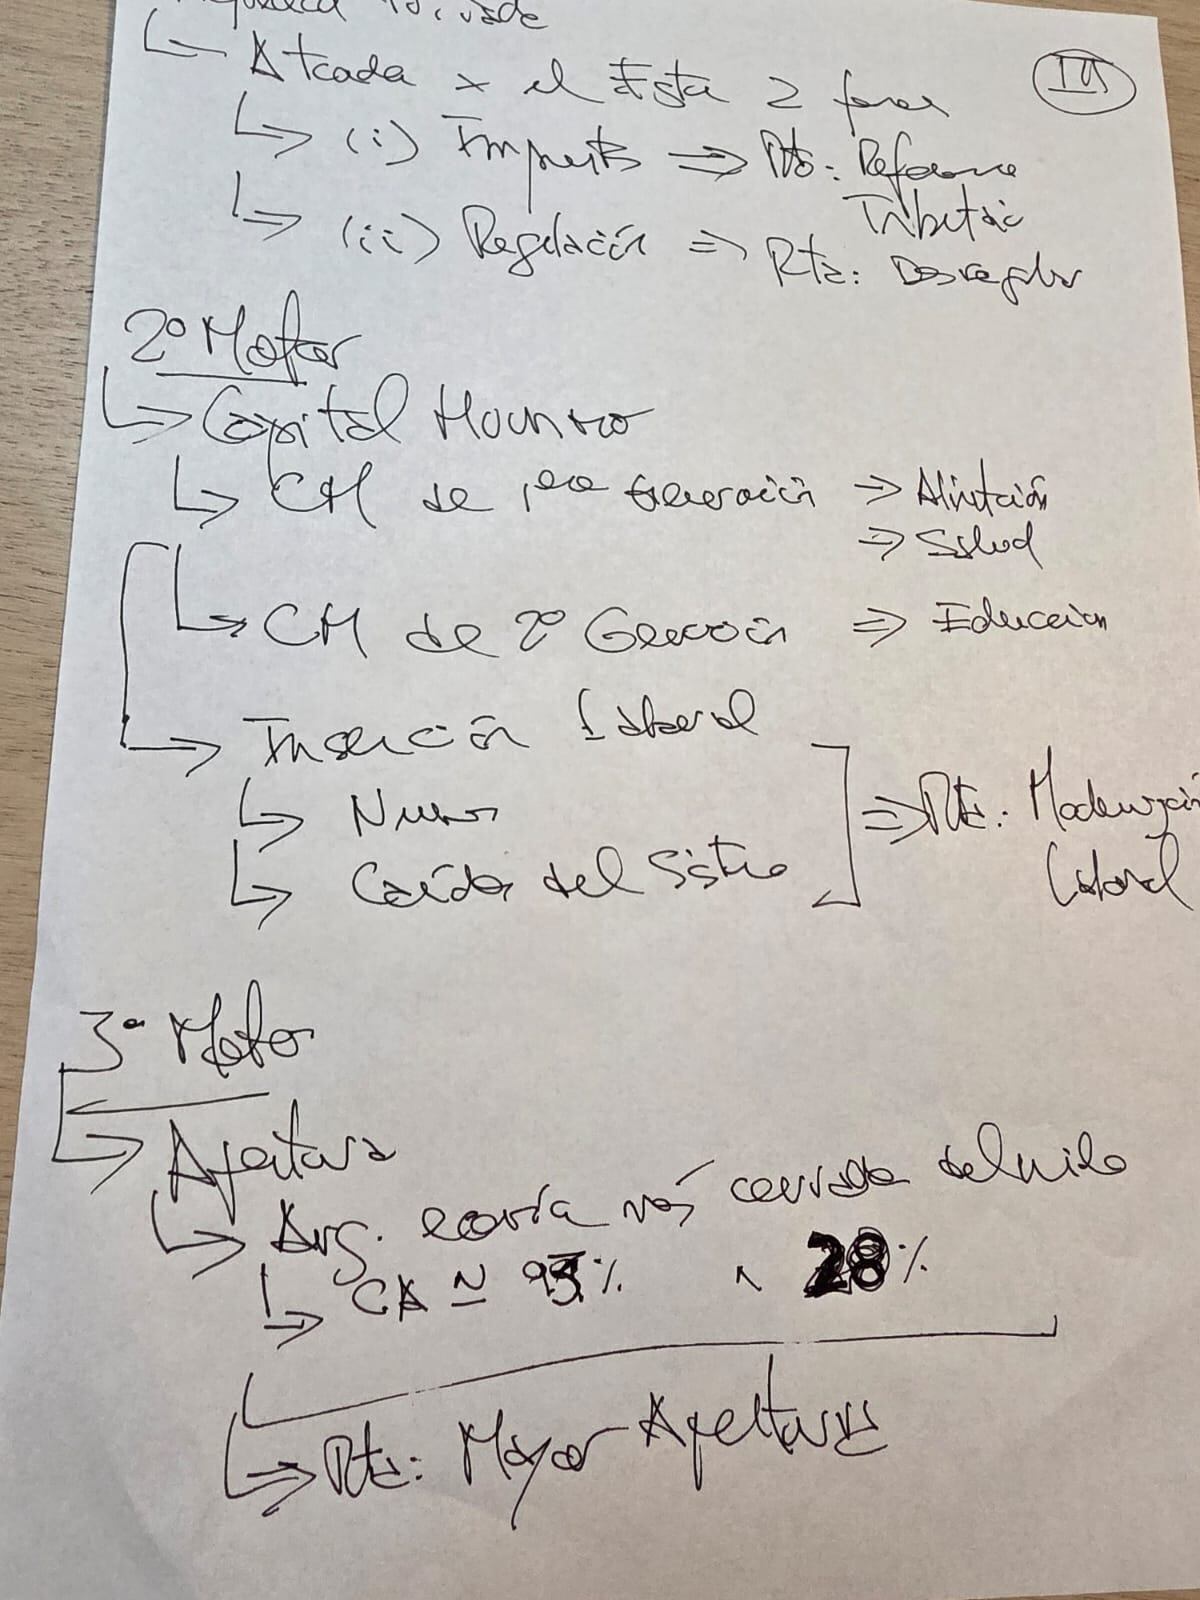 IV
Atcada x el Esta 2 formas
(i) Impuests ⇒ Rta: Reforma
Tributaria
(ii) Regulación ⇒ Rta: Desregular
2º Motor
Capital Humano
CH de 1era Generación ⇒ Alimtación
⇒ Salud
CH de 2º Generación ⇒ Educación
Inserción Laboral
Nuevos
Caídos del Sistema
⇒ Rta: Modernización
Laboral
3º Motor
Apertura
Arg. economía más cerrada del mundo
CA ≃ 28%
⇒ Rta: Mayor Apertura